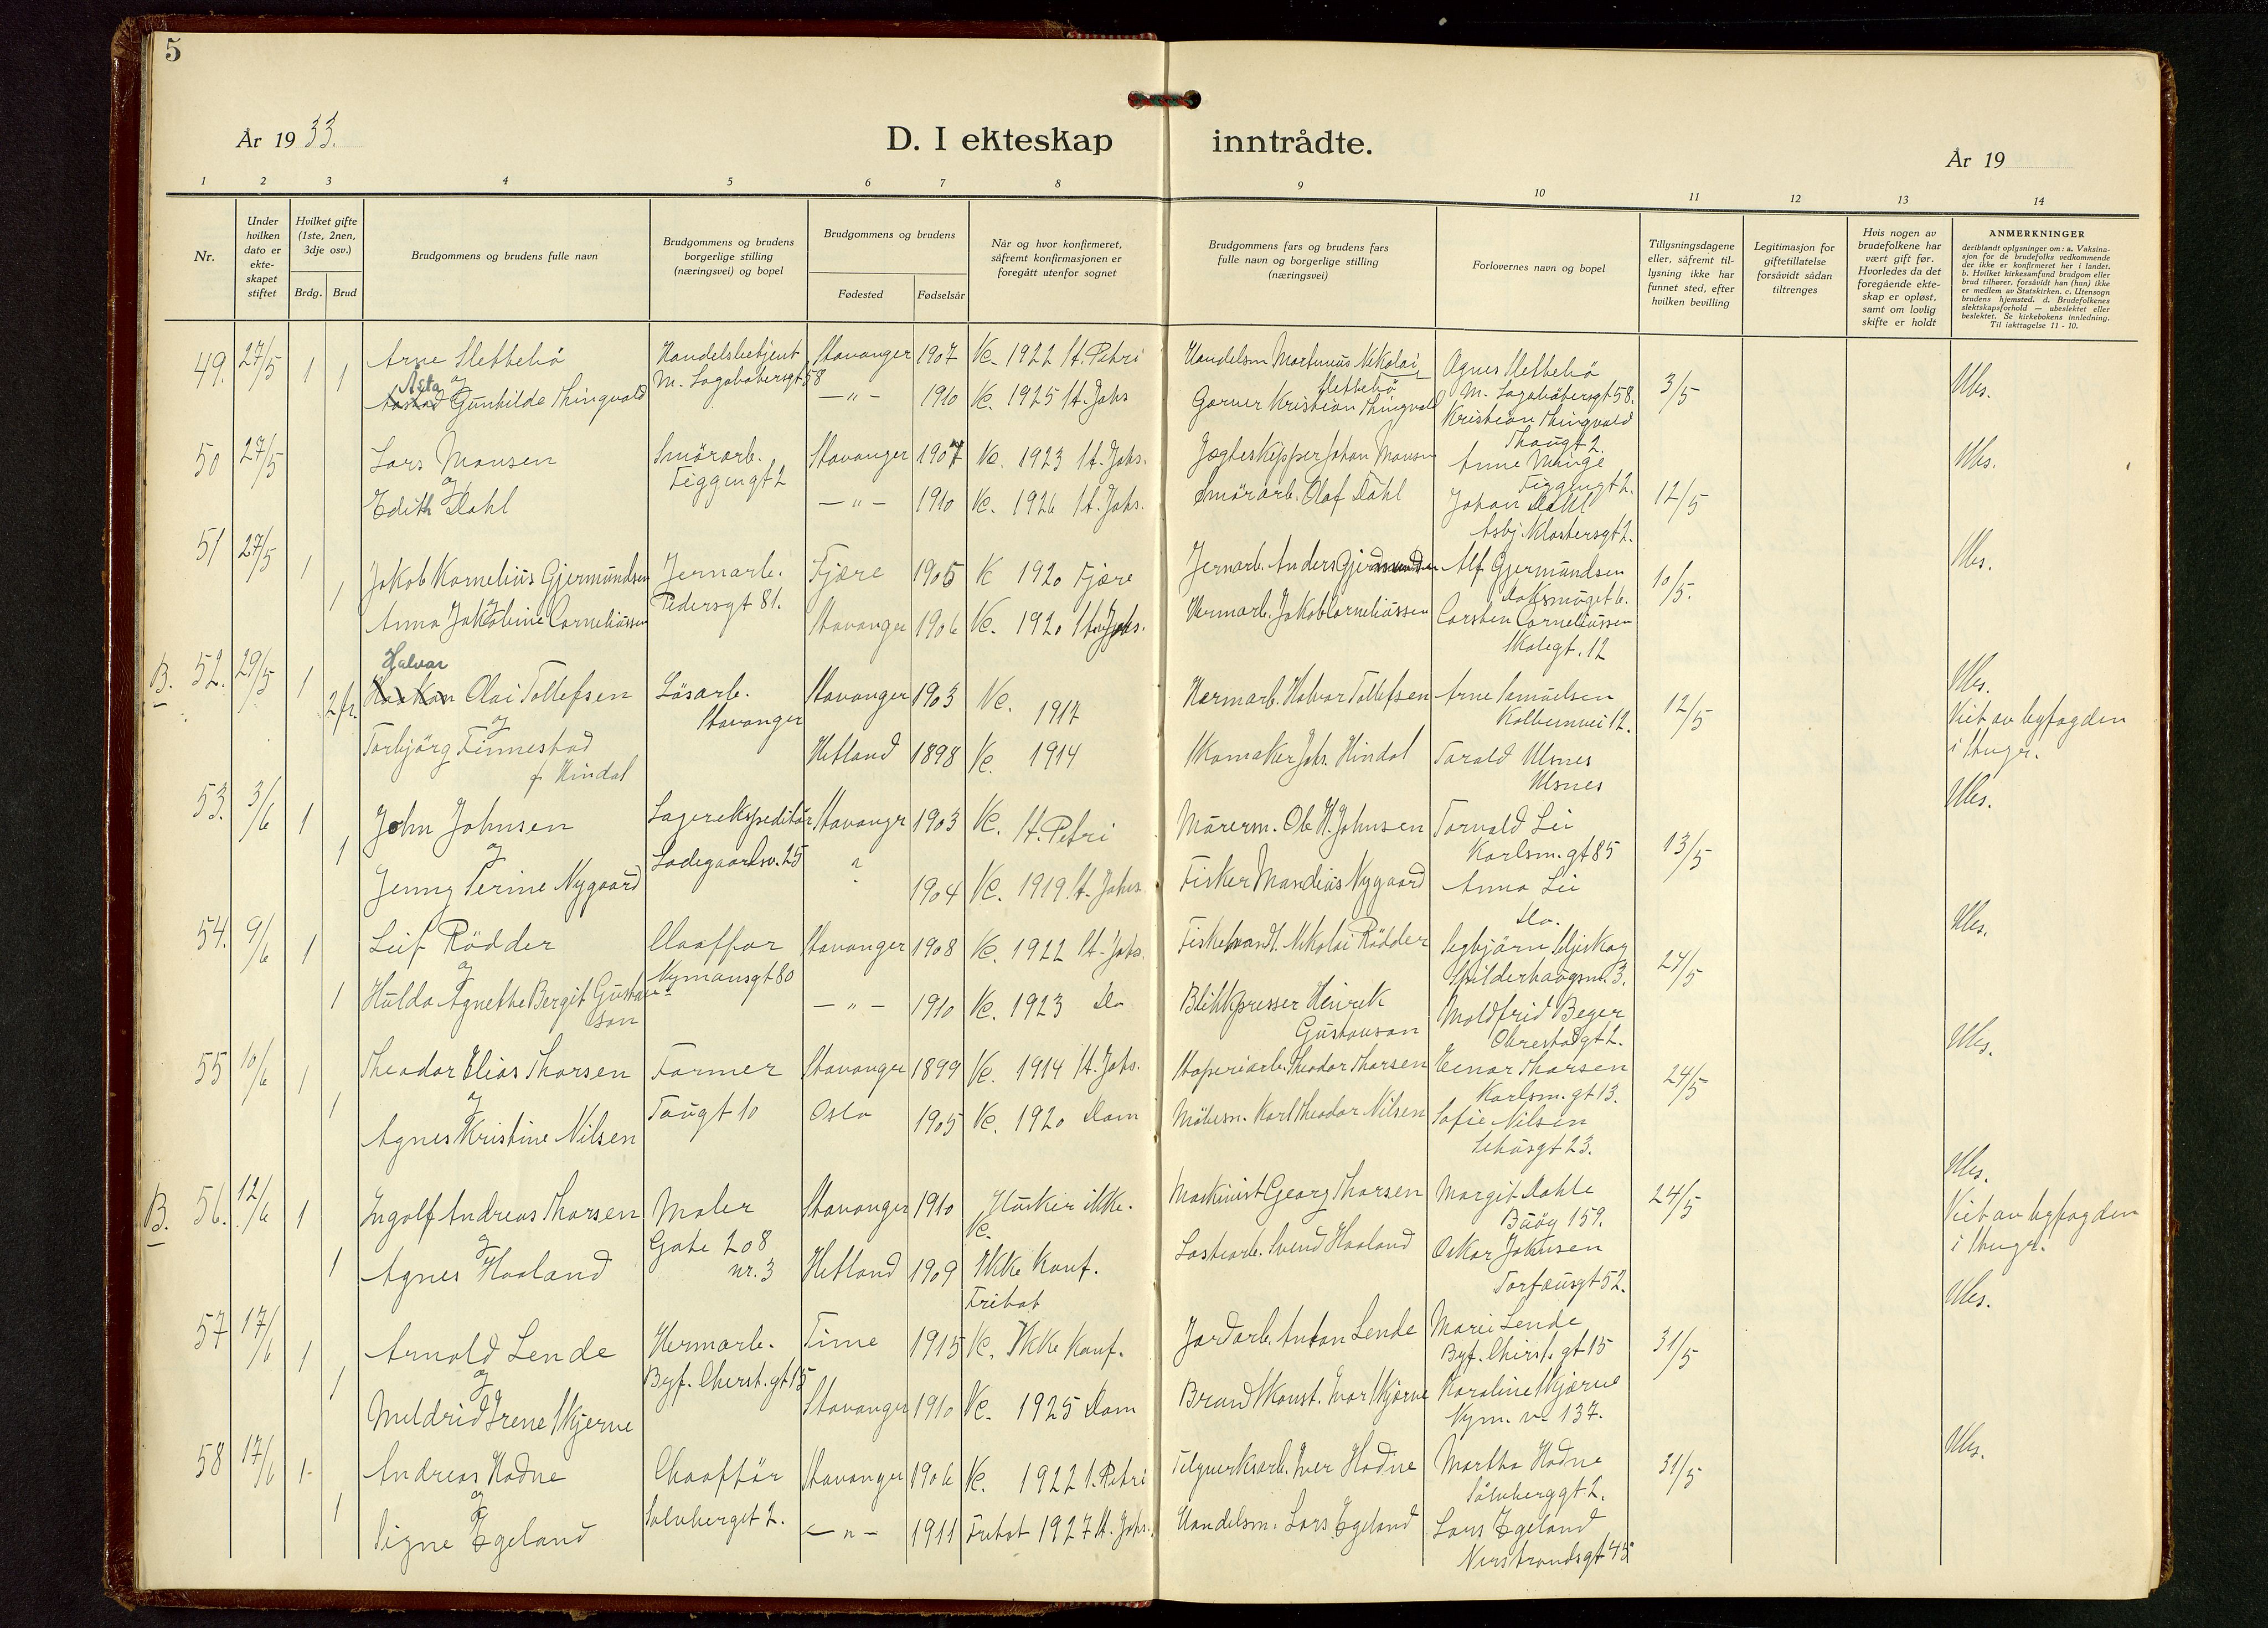 5
År 19 33.
D. I ekteskap inntrådte.
År 19
1 2 3 4 5 6 7 8 9 10 11 12 13 14
Nr.
Under hvilken dato er ekte-skapet stiftet
Hvilket gifte (1ste, 2nen, 3dje osv.)
Brdg. Brud
Brudgommens og brudens fulle navn
Brudgommens og brudens borgerlige stilling (næringsvei) og bopel
Brudgommens og brudens
Fødested Fødselsår
Når og hvor konfirmeret, såfremt konfirmasjonen er foregått utenfor sognet
Brudgommens fars og brudens fars fulle navn og borgerlige stilling (næringsvei)
Forlovernes navn og bopel
Tillysningsdagene eller, såfremt til-lysning ikke har funnet sted, efter hvilken bevilling
Legitimasjon for giftetillatelse forsåvidt sådan tiltrenges
Hvis nogen av brudefolkene har vært gift før. Hvorledes da det foregående ekte-skap er opløst, samt om lovlig skifte er holdt
ANMERKNINGER
deriblandt oplysninger om: a. Vaksina-sjon for de brudefolks vedkommende der ikke er konfirmeret her i landet. b. Hvilket kirkesamfund brudgom eller brud tilhører, forsåvidt han (hun) ikke er medlem av Statskirken. c. Utensogn brudens hjemsted. d. Brudefolkenes slektskapsforhold — ubeslektet eller beslektet. Se kirkebokens innledning. Til iakttagelse 11 - 10.
49. 27/5 1 1 Arne Slettebö Handelsbetjent Stavanger 1907 V. 1922 St. Petri Handelsm. Martinius Nikolai Agnes Slettebö 3/5 Ubs.
og M. Lagabøtersgt 58 Slettebö M. Lagabøtersgt 58.
Asta Gunhilde Thingvold — " — 1910 V. 1925 St. Johs Garver Kristian Thingvold Kristian Thingvold
50 27/5 Lars Mansen Smörarb. Stavanger 1907 V. 1923 St. Johs. Jagteskipper Johan Mansen Anne 12/5 Ubs.
og Figgengt 2 Figgengt 2.
Edith Dahl — " — 1910 V. 1926 St. Johs. Smörarb. Olaf Dahl Johan Dahl
Asbj. Klostersgt 2.
51 27/5 1 1 Jakob Kornelius Gjermundsen Jernarb. Fjære 1905 V 1920 Fjære Jernarb. Anders Gjermundsen Alf Gjermundsen 10/5. Ubs.
og Pedersgt 81.
Anna Jakobine Corneliussen Stavanger 1906 V. 1920 St. Johs. Hermarb. Jakob Corneliussen Carsten Corneliussen
Skolegt. 12
B. 52. 29/5 1 2 fr. Halvar Olai Tollefsen Løsarb. Stavanger 1903 V. 1917 Hermarb. Halvar Tollefsen Arne Samuelsen 12/5 Ubs.
og Stavanger Viet av byfogden
Torbjörg Finnestad Hetland 1898 V. 1914 Skomaker Johs. Hindal Torald Ulsnes i Stvgr.
f. Hindal Ulsnes
53. 3/6 1 1 John Johnsen Lagerekspeditör Stavanger 1903 V. St. Petri Murerm. Ole H. Johnsen Torvald Lei 13/5 Ubs.
og Ladegaardsv. 25 " Karlsm. gt 85
Jenny Serine Nygaard 1904 V. 1919 St. Johs. Fisker Mandius Nygaard Anna Lei
Do.
54. 9/6 1 1 Leif Rödder Chaffør Stavanger 1908 V. 1922 St. Johs. Fiskehandl. Nikolai Rödder 24/5 Ubs.
og Nymansgt 80 Spilderhaugsm. 3.
Hulda Agnethe Bergit Gustavson — " — 1910 V. 1923 Do Blikkpresser Henrik Gustavson Moldfrid Beger
Obrestadgt 2.
55 10/6 1 1 Theodor Elias Thorsen Former Stavanger 1899 V. 1914 St. Johs. Støperiarb. Theodor Thorsen Einar Thorsen 24/5 Ubs.
og Taugt 10 Karlsm. gt 13.
Agnes Kristine Nilsen Oslo 1905 V. 1920 Dom Møbelsn. Karl Theodor Nilsen Sofie Nilsen
Sehusgt 23.
B. 56. 12/6 1 1 Ingolf Andreas Thorsen Maler Stavanger 1910 Husker ikke. Maskinist Georg Thorsen Margit Dahle 24/5 Ubs.
og Gate 208 V. Buöy 159. Viet av byfogden
Agnes Haaland nr. 3 Hetland 1909 Ikke konf. Lastearb. Svend Haaland Oskar Johnsen i Stvgr.
Fritat Torfæusgt 52.
57 17/6 1 1 Arnold Lende Hermarb. Time 1915 V. Ikke konf. Jordarb. Anton Lende Marie Lende 31/5 Ubs.
og Byf. Christ. gt 15 Byf. Christ. gt 15
Meldrid Irene Skjerve Stavanger 1910 V. 1925 Dom Brandkonst. Ivar Skjerve Karoline Skjerve
Nym. v. 137.
58 17/6 1. 1 Andreas Hodne Chaffør Stavanger 1906 V. 1922 St. Petri Telgverksarb. Iver Hodne Martha Hodne 31/5 Ubs.
og Sølvberggt 2. Sølvberggt 2.
Signe Egeland — " — 1911 Fritat 1927 St. Johs. Handelsm. Lars Egeland Lars Egeland
Nerstrandsgt 45